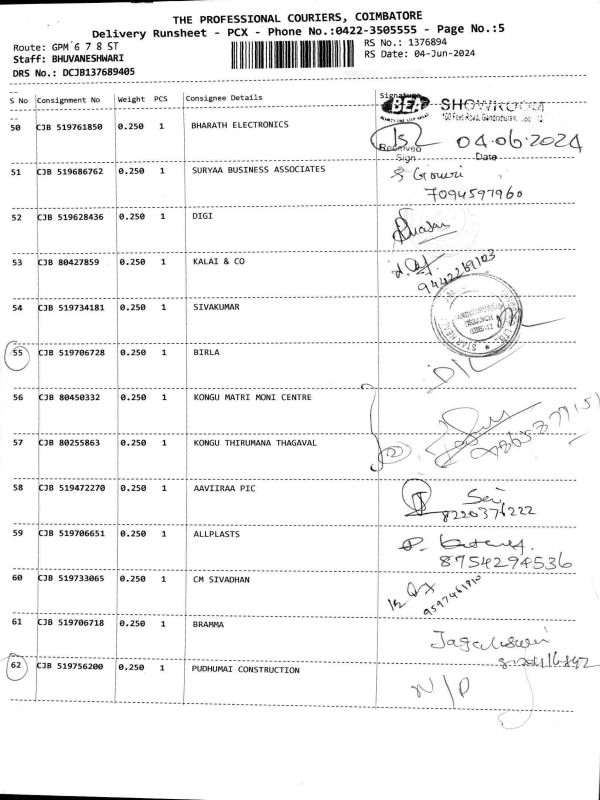 THE PROFESSIONAL COURIERS, COIMBATORE
Delivery Runsheet - PCX - Phone No.:0422-3505555 - Page No.:5
Route: GPM 6 7 8 ST RS No.: 1376894
Staff: BHUVANESHWARI RS Date: 04-Jun-2024
DRS No.: DCJB137689405
S No Consignment No Weight PCS Consignee Details Signature
BEA SHOWROOM
100 Feet Road, Gandhipuram,
50 CJB 519761850 0.250 1 BHARATH ELECTRONICS
Received 04.06.2024
Sign Date
51 CJB 519686762 0.250 1 SURYAA BUSINESS ASSOCIATES S Gowri
7094597960
52 CJB 519628436 0.250 1 DIGI
53 CJB 80427859 0.250 1 KALAI & CO
9442269103
54 CJB 519734181 0.250 1 SIVAKUMAR
55 CJB 519706728 0.250 1 BIRLA D/L
56 CJB 80450332 0.250 1 KONGU MATRI MONI CENTRE
57 CJB 80255863 0.250 1 KONGU THIRUMANA THAGAVAL 2
58 CJB 519472270 0.250 1 AAVIIRAA PIC
8220376222
59 CJB 519706651 0.250 1 ALLPLASTS
8754294536
60 CJB 519733065 0.250 1 CM SIVADHAN
9597461910
61 CJB 519706718 0.250 1 BRAMMA
62 CJB 519756200 0.250 1 PUDHUMAI CONSTRUCTION N/P